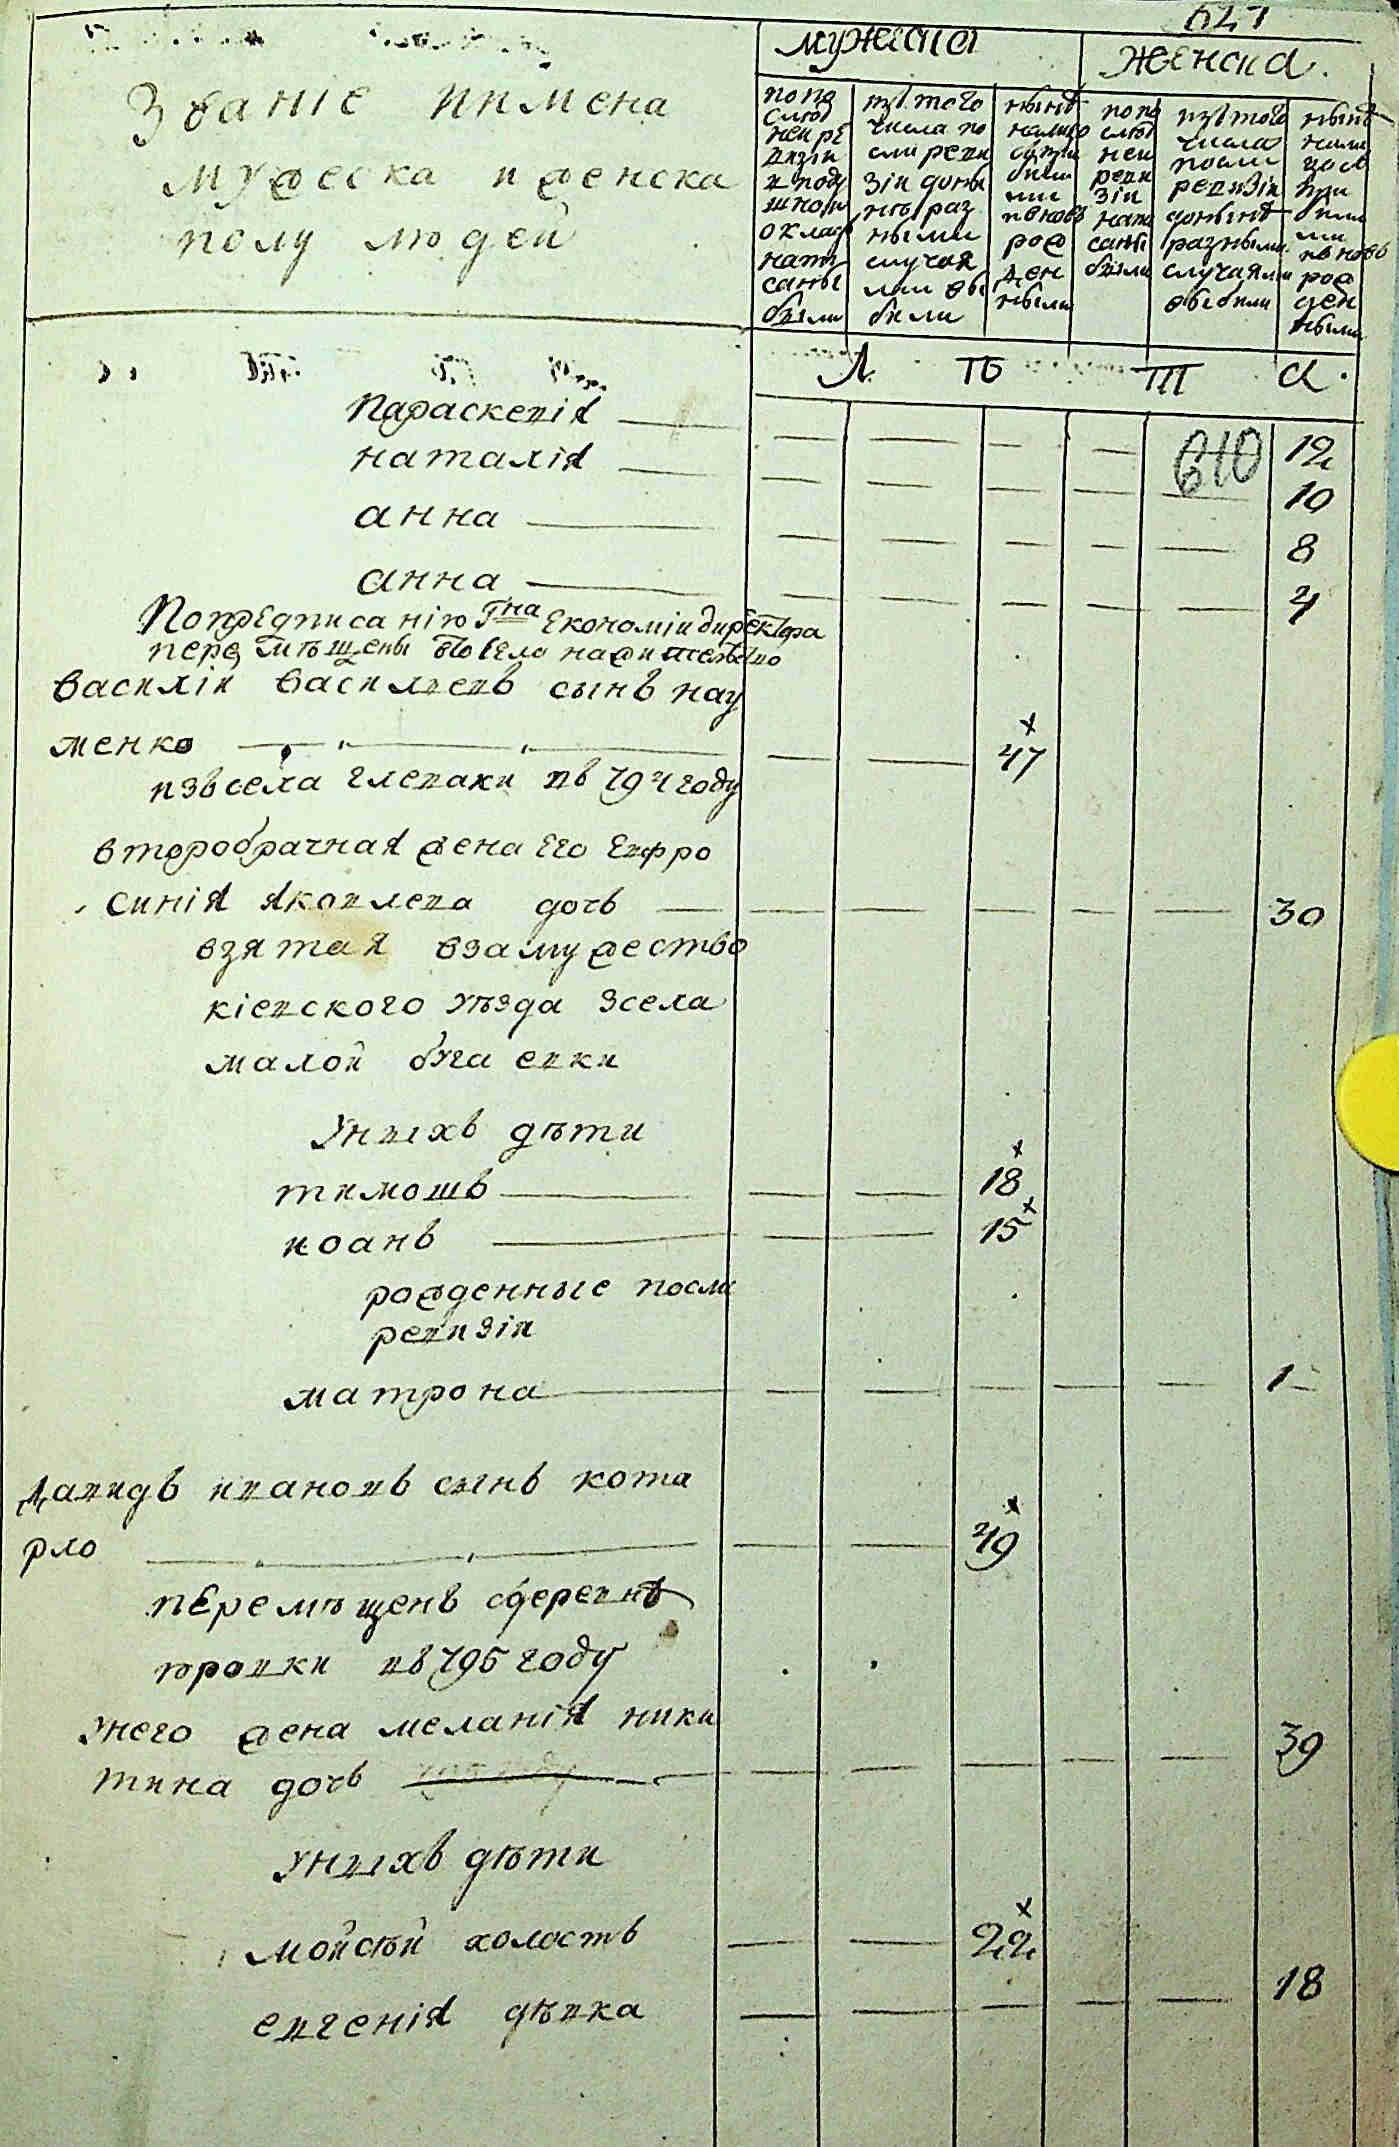 мужеска
женска.
Званіе и имена
мужеска и женска
полу людей
по по
след
ней ре
визіи
и поду
шном
окладѣ
напи
саны
были
изъ того
числа по
сли реви
зіи доны
нѣ раз
ными
случая
ми вы
били
нынѣ
налицо
съ при
были
ми
и вновь
рож
ден
ными
по по
след
ней
реви
зіи
напи
саны
были
изъ того
числа
посли
ревизіи
донынѣ
разными
случаями
выбили
нынѣ
нали
цо съ
при
были
ми
и вновь
рож
ден
ными
Л. В Т А.
Параскевія 12
610
наталія 10
анна 8
анна 4
По предписанію Г-на Економіи директора
перемѣщены в то село на жительство
Василій Васильевъ сынъ нау
менко 47
изъ села глеваки въ 794 году
второбрачная жена Его Евфро
синія яковлева дочь 30
взятая взамужество
кіевского уѣзда зсела
малой бугаевки
У нихъ дѣти
тимошъ 18
иоанъ 15
рожденные посли
ревизіи
матрона 1
Давидъ ивановъ сынъ кота
рло 49
перемѣщенъ
въ 795 году
У него жена меланія ники
тина дочь 39
У нихъ дѣти
мойсѣй холостъ 22
евгенія дѣвка 18